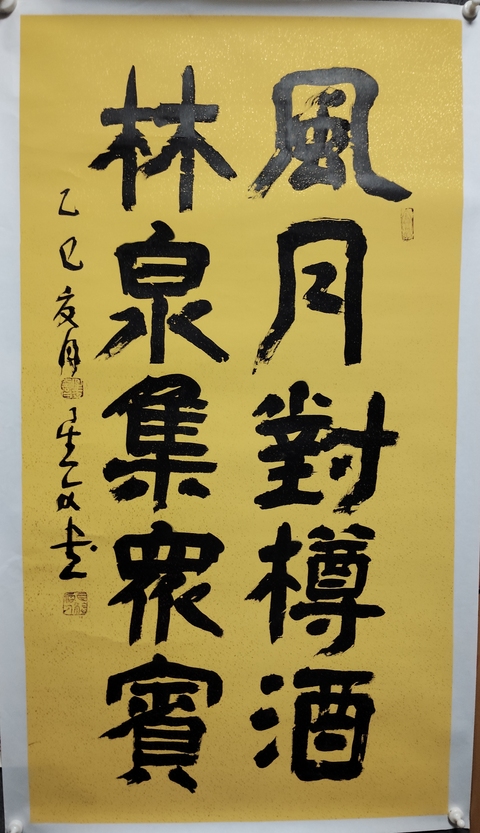 風月對樽酒
林泉集眾賓
乙巳夏月
書